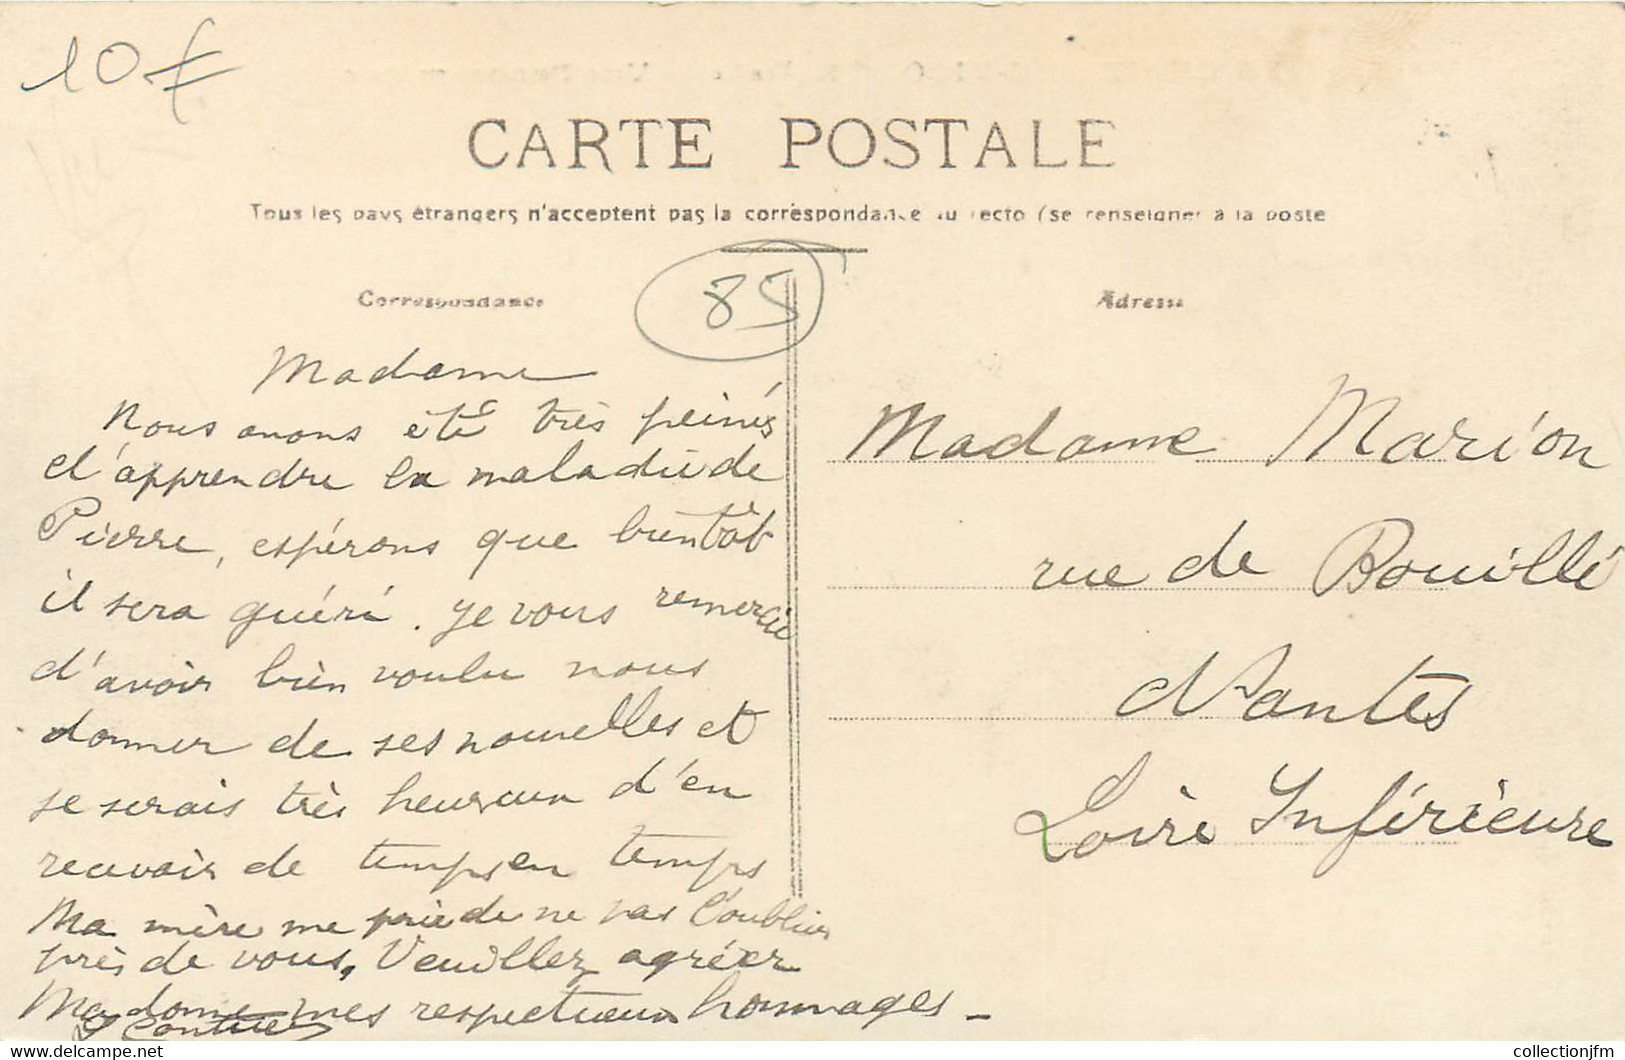 10 €
CARTE POSTALE
Tous les pays étrangers n'acceptent pas la correspondance au recto (se renseigner à la poste
85
Correspondance
Adresse
Madame
Nous avons été très peinés
d'apprendre la maladie de
Pierre, espérons que bientôt
il sera guéri. Je vous remercie
d'avoir bien voulu nous
donner de ses nouvelles et
je serais très heureux d'en
recevoir de temps en temps
Ma mère me prie de ne pas l'oublier
près de vous, Veuillez agréer
Madame mes respectueux hommages -
Madame Marion
rue de Bouillé
Nantes
Loire Inférieure
collectionjfm